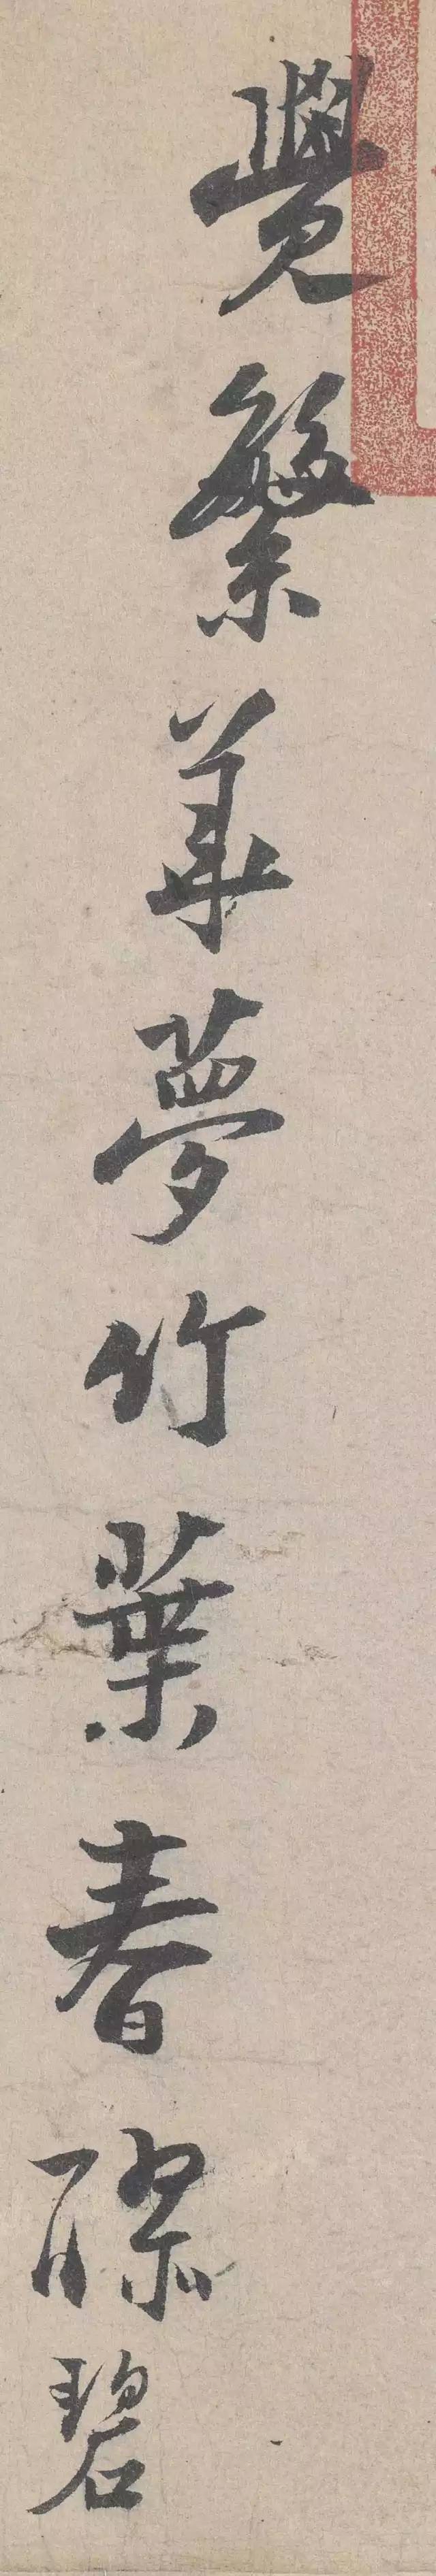 覺繁華夢竹葉春醪碧